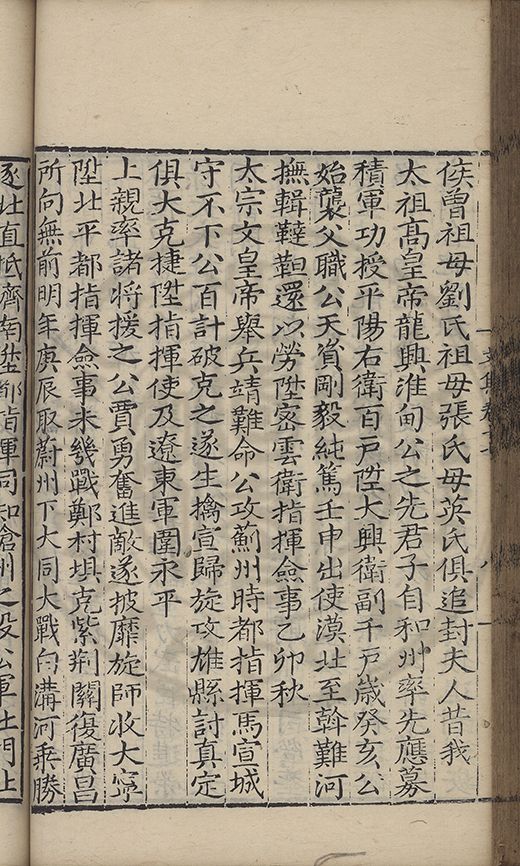 侯曾祖母劉氏祖母張氏母英氏俱追封夫人昔我
太祖高皇帝龍興淮甸公之先君子自和州率先應募
積軍功授平陽右衛百戶陞大興衛副千戶歲癸亥公
始襲父職公天資剛毅純篤壬申出使漠北至斡難河
撫輯韃靼還以勞陞密雲衛指揮僉事乙卯秋
太宗文皇帝舉兵靖難命公攻薊州時都指揮馬宣城
守不下公百計破克之遂生擒宣歸旋攻雄縣討真定
俱大克捷陞指揮使及遼東軍圍永平
上親率諸將援之公賈勇奮進敵遂披靡旋師收大寧
陞北平都指揮僉事未幾戰鄭村埧克紫荆關復廣昌
所向無前明年庚辰取蔚州下大同大戰白溝河乘勝
逐北直抵濟南陞都指揮同知滄州之役公軍